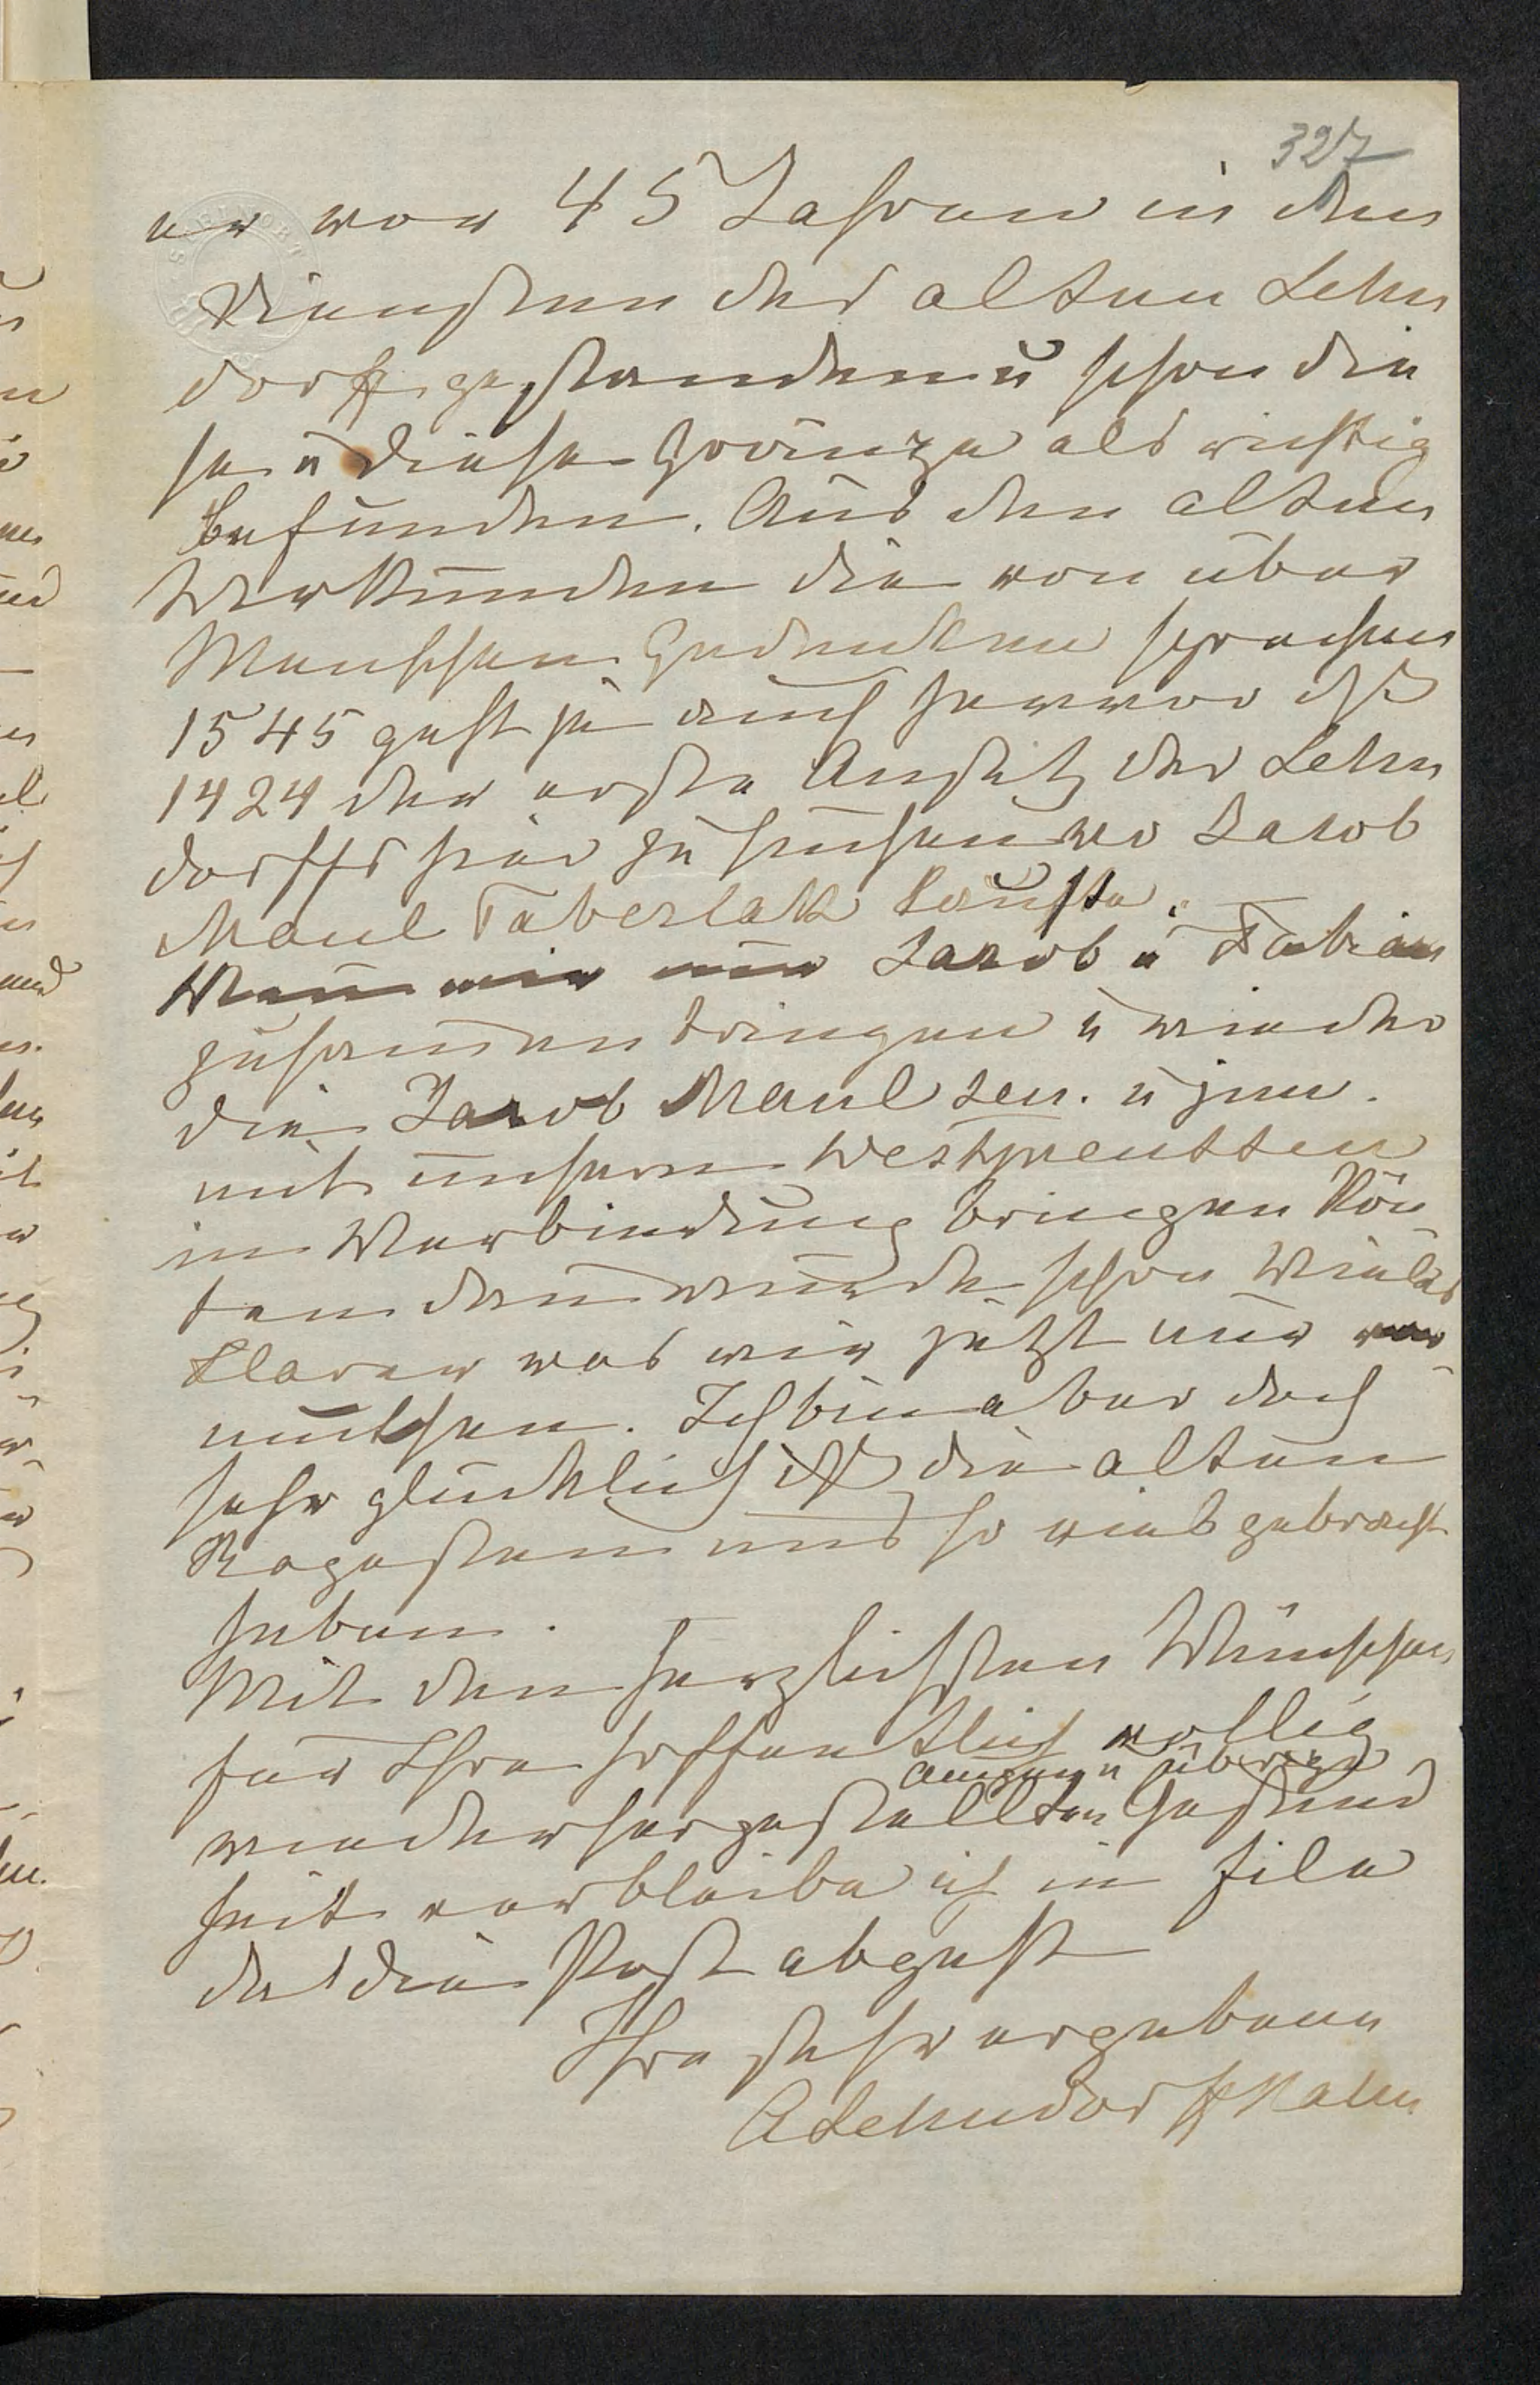 327
er vor 45 Jahren in den
Diensten der alten Lehn
dorff gestanden u schon die
se u diese Grenze als richtig
befunden. Aus den alten
Urkunden die von über
Menschen Gedenken sprechen
1545 geht ja auch hervor dß
1424 der erste Ansitz der Lehn
dorffs hier zu suchen wo Jacob
Maul Taberlak kaufte.
Wenn wir nur Jacob u Fabian
zusammen bringen u wieder
die Jacob Maul sen. u jun.
mit unsern Westpreussen
in Verbindung bringen kön
ten dann würde schon Vieles
klarer was wir jetzt nur ver
muthen. Ich bin aber doch
sehr glücklich dß die alten
Regesten uns so viel gebracht
haben.
Mit den herzlichsten Wünschen
für Ihre hoffentlich völlig
Augen u übrige
wiederhergestellten Gesund
heit verbleibe ich in Eile
da die Post abgeht
Ihre sehr ergebene
A Lehndorff Hahn